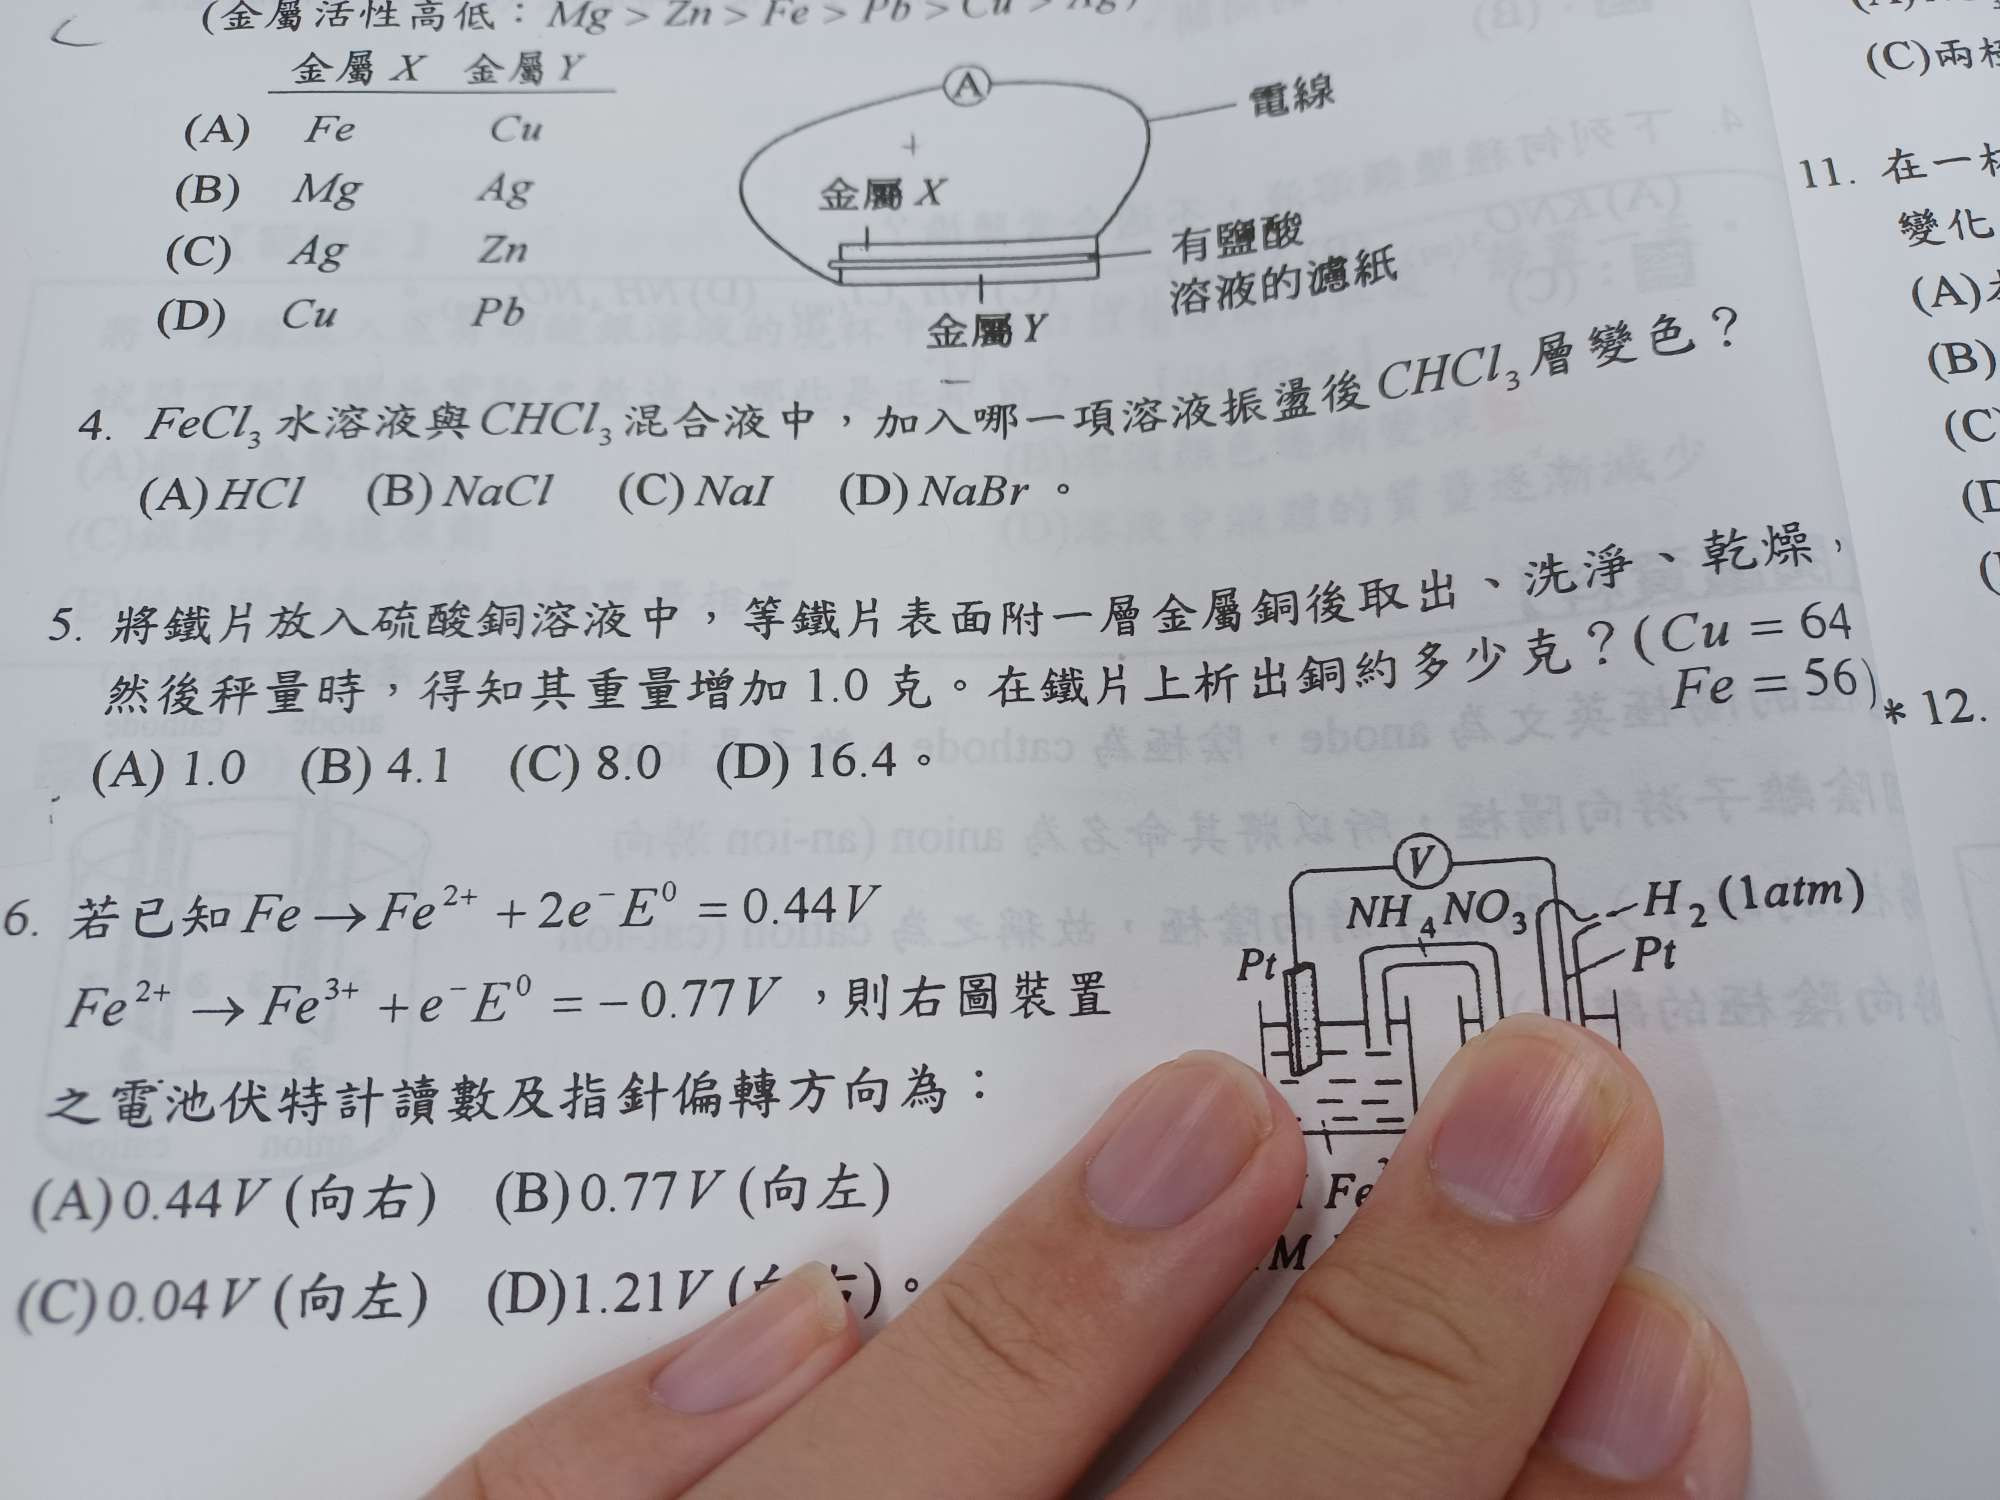 (金屬活性高低：Mg > Zn > Fe > Pb > Cu > Ag)
金屬 X 金屬 Y
(A) Fe Cu
(B) Mg Ag
(C) Ag Zn
(D) Cu Pb
A
電線
+
金屬 X
有鹽酸
溶液的濾紙
金屬 Y
—
4. FeCl₃ 水溶液與 CHCl₃ 混合液中，加入哪一項溶液振盪後 CHCl₃ 層變色？
(A) HCl (B) NaCl (C) NaI (D) NaBr。
5. 將鐵片放入硫酸銅溶液中，等鐵片表面附一層金屬銅後取出、洗淨、乾燥，
然後秤量時，得知其重量增加 1.0 克。在鐵片上析出銅約多少克？(Cu = 64
Fe = 56)
(A) 1.0 (B) 4.1 (C) 8.0 (D) 16.4。
6. 若已知 Fe → Fe²⁺ + 2e⁻ E⁰ = 0.44V
Fe²⁺ → Fe³⁺ + e⁻ E⁰ = −0.77V，則右圖裝置
之電池伏特計讀數及指針偏轉方向為：
(A) 0.44V (向右) (B) 0.77V (向左)
(C) 0.04V (向左) (D) 1.21V
V
NH₄NO₃
H₂ (1atm)
Pt
Pt
Fe
M
(C)兩
11. 在一
變化
(A)
(B)
(C)
(D
*12.